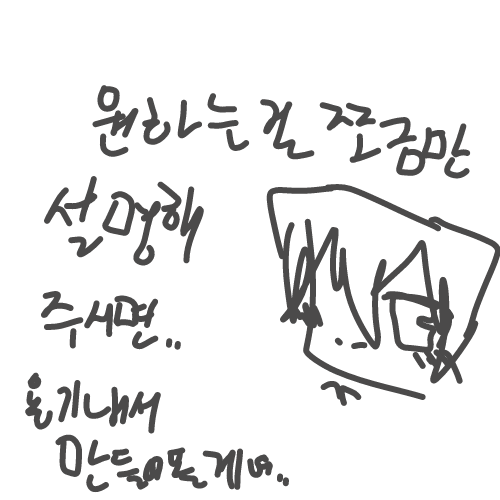 원하는걸 쪼금만
설명해
주시면..
용기내서
만들어볼게여..